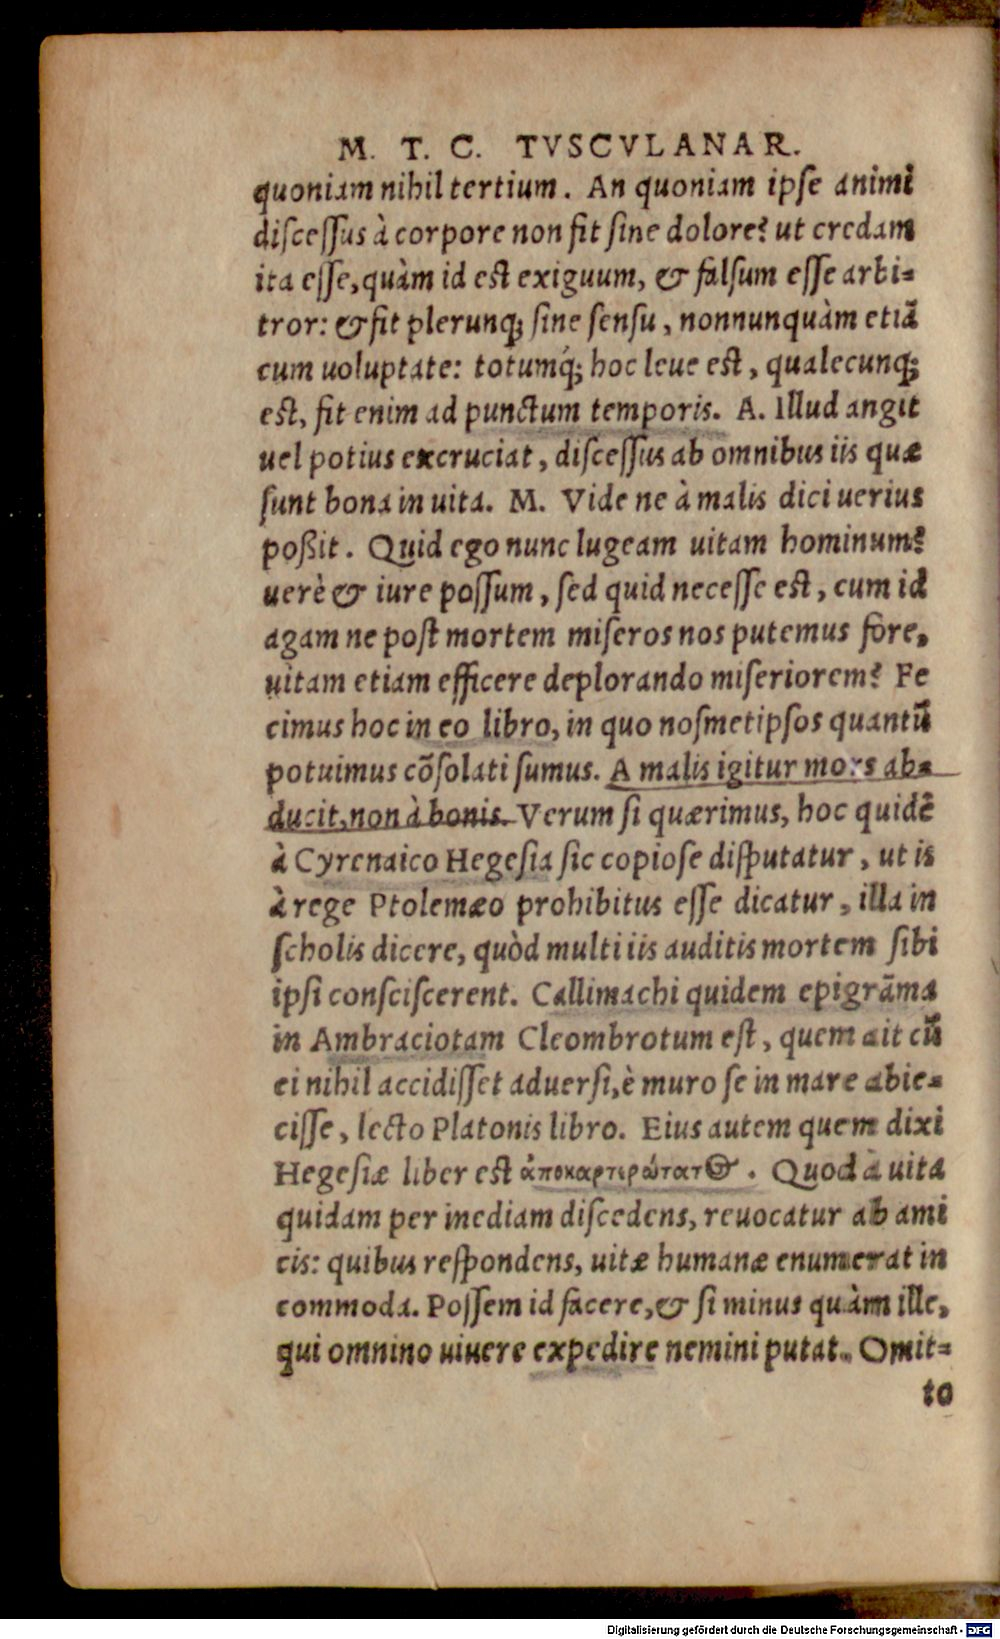 M. T. C. TVSCVLANAR.
quoniam nihil tertium. An quoniam ipſe animi
diſceſſus à corpore non fit ſine dolore? ut credam
ita eſſe, quàm id eſt exiguum, & falſum eſſe arbi-
tror: & fit plerunq; ſine ſenſu, nonnunquàm etiã
cum uoluptate: totumq́; hoc leue eſt, qualecunq;
eſt, fit enim ad punctum temporis. A. Illud angit
uel potius excruciat, diſceſſus ab omnibus iis quæ
ſunt bona in uita. M. Vide ne à malis dici uerius
poßit. Quid ego nunc lugeam uitam hominum?
uerè & iure poſſum, ſed quid neceſſe eſt, cum id
agam ne poſt mortem miſeros nos putemus fore,
uitam etiam efficere deplorando miſeriorem? Fe
cimus hoc in eo libro, in quo noſmetipſos quantũ
potuimus cõſolati ſumus. A malis igitur mors ab-
ducit, non à bonis. Verum ſi quærimus, hoc quidẽ
à Cyrenaico Hegeſia ſic copioſe diſputatur, ut is
à rege Ptolemæo prohibitus eſſe dicatur, illa in
ſcholis dicere, quòd multi iis auditis mortem ſibi
ipſi conſciſcerent. Callimachi quidem epigrãma
in Ambraciotam Cleombrotum eſt, quem ait cũ
ei nihil accidiſſet aduerſi, è muro ſe in mare abie-
ciſſe, lecto Platonis libro. Eius autem quem dixi
Hegeſiæ liber eſt ἀποκαρτερώτατ. Quod à uita
quidam per inediam diſcedens, reuocatur ab ami
cis: quibus reſpondens, uitæ humanæ enumerat in
commoda. Poſſem id facere, & ſi minus quàm ille,
qui omnino uiuere expedire nemini putat. Omit-
to
Digitalisierung gefördert durch die Deutsche Forschungsgemeinschaft - DFG